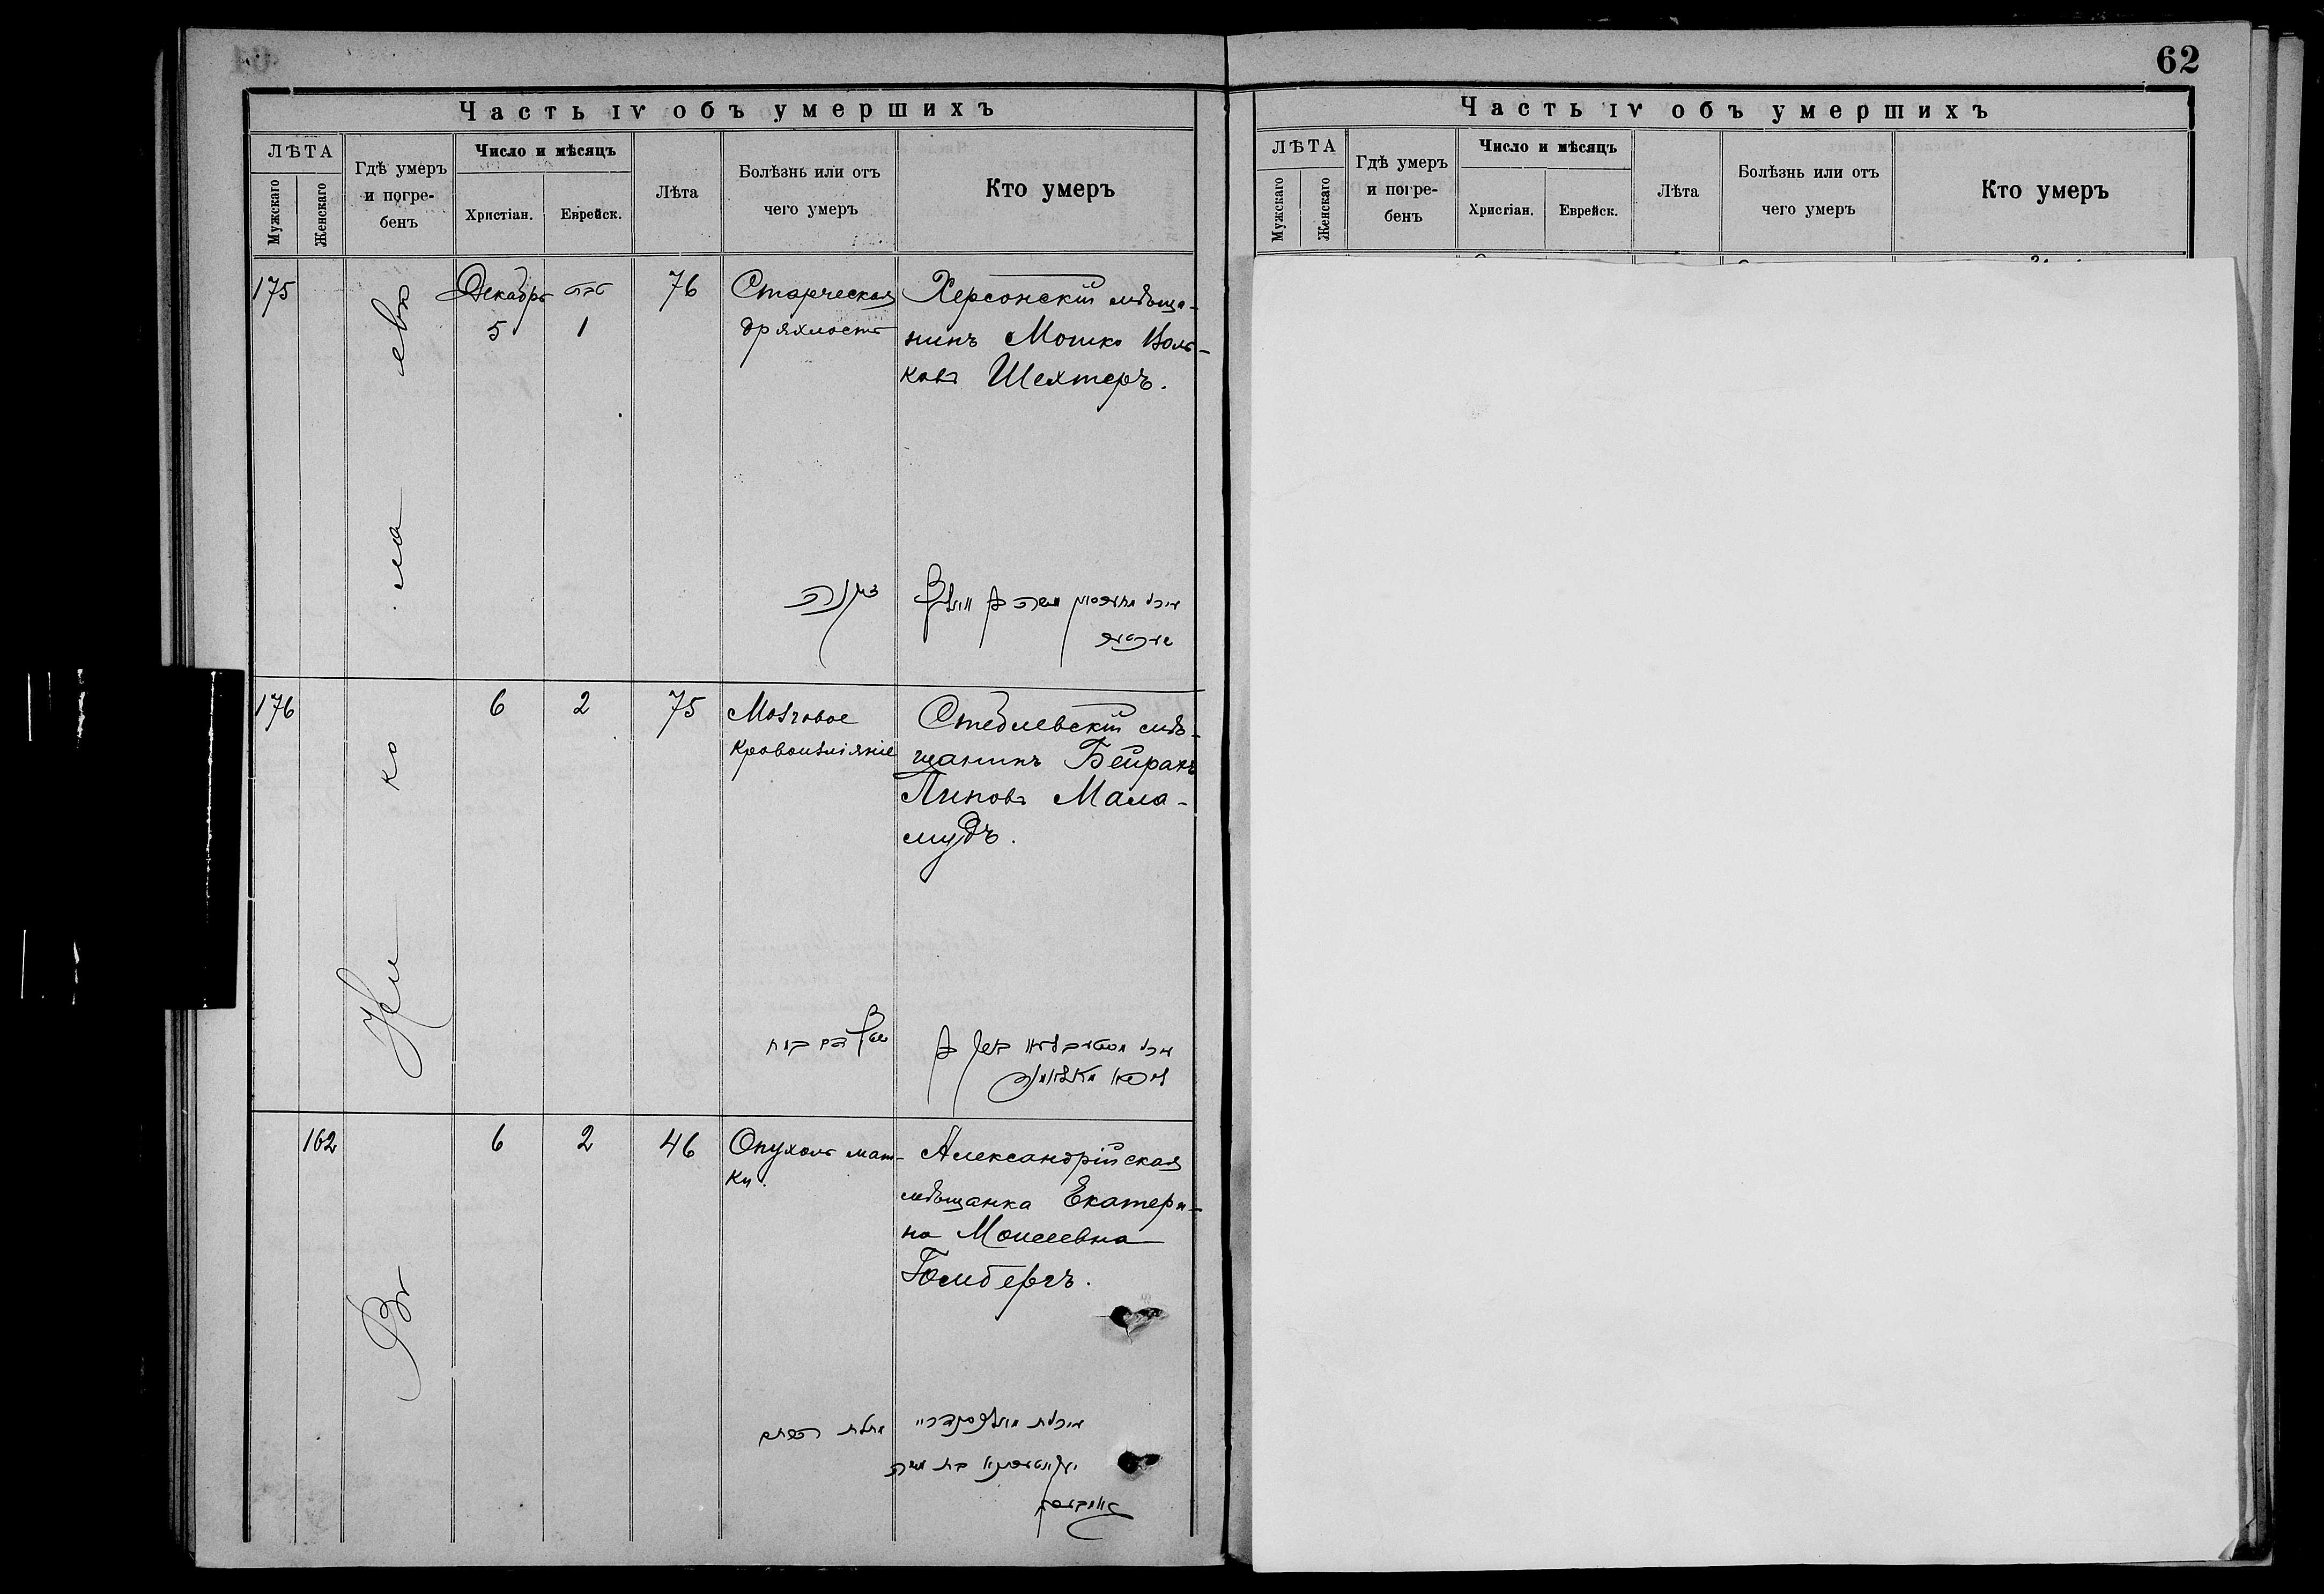 62
Часть IV объ умершихъ
ЛѢТА
Мужскаго
Женскаго
Гдѣ умеръ
и погре-
бенъ
Число и мѣсяцъ
Христіан.
Еврейск.
Лѣта
Болѣзнь или отъ
чего умеръ
Кто умеръ
175
Декабрь
5
טבת
1
76
Старческая
дряхлость
Херсонскій мѣща-
нинъ Мошко Воль-
ковъ Шехтеръ.
זקנה
משה בן
שעכטער
176
6
2
75
Мозговое
кровоизліяніе
Стеблевскій мѣ-
щанинъ Бейрахъ
Пиновъ Мала-
мудъ.
162
6
2
46
Опухоль мат-
ки.
Александрійская
мѣщанка Екатери-
на Моисеевна
Гомбергъ.
בת משה
Въ Николаевѣ
Часть IV объ умершихъ
ЛѢТА
Мужскаго
Женскаго
Гдѣ умеръ
и погре-
бенъ
Число и мѣсяцъ
Христіан.
Еврейск.
Лѣта
Болѣзнь или отъ
чего умеръ
Кто умеръ